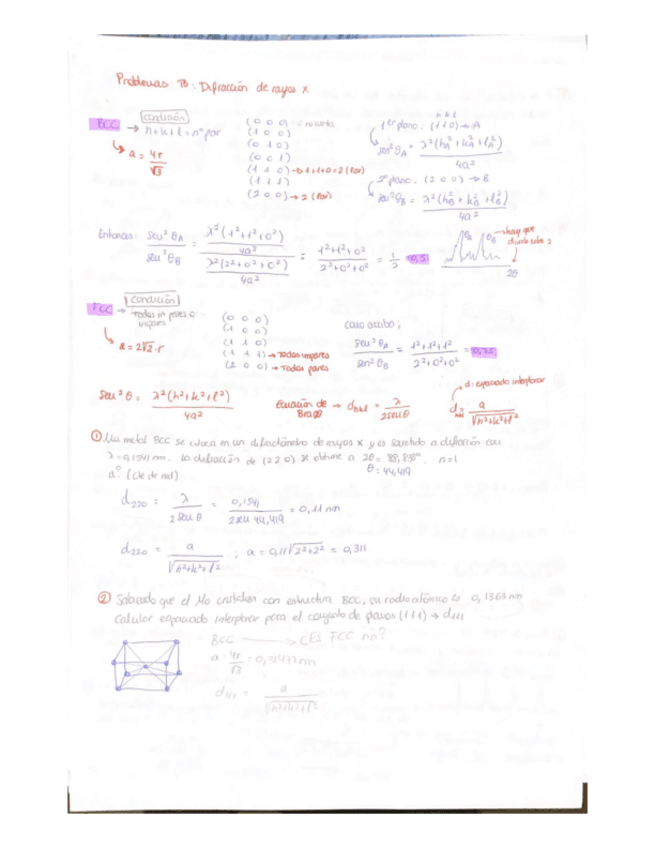 Problemas T3: Difracción de rayos x
BCC → condición
h+k+l = nº par
a = 4r/√3
(0 0 0)
(1 0 0)
(0 1 0)
(0 0 1)
(1 1 0) → 1+1+0=2 (Par)
(1 1 1)
(2 0 0) → 2 (Par)
h k l
1er plano: (1 1 0) → A
sen²θA = λ²(hA²+kA²+lA²)/4a²
2º plano: (2 0 0) → B
sen²θB = λ²(hB²+kB²+lB²)/4a²
Entonces: sen²θA / sen²θB = λ²(1²+1²+0²)/4a² / λ²(2²+0²+0²)/4a² = 1²+1²+0² / 2²+0²+0² = 1/2 = 0,5
θA θB → hay que dividir entre 2
2θ
FCC → condición
Todos pares o impares
a = 2√2·r
(0 0 0)
(1 0 0)
(1 1 0)
(1 1 1) → Todos impares
(2 0 0) → Todos pares
como arriba:
sen²θA / sen²θB = 1²+1²+1² / 2²+0²+0² = 0,75
sen²θ = λ²(h²+k²+l²)/4a²
Ecuación de Bragg → dhkl = λ/2senθ
d: espaciado interplanar
dhkl = a/√h²+k²+l²
① Un metal BCC se coloca en un difractómetro de rayos x y es sometido a difracción con
λ=0,1541 nm. La difracción de (2 2 0) se obtiene a 2θ = 88,838º. n=1
θ = 44,419
a? (cte de red)
d220 = λ/2senθ = 0,1541/2sen 44,419 = 0,11 nm
d220 = a/√h²+k²+l² ; a = 0,11√2²+2² = 0,311
② Sabiendo que el Mo cristaliza con estructura BCC, su radio atómico es 0,1363 nm
Calcular espaciado interplanar para el conjunto de planos (1 1 1) → d111
BCC → ¿ES FCC no?
a = 4r/√3 = 0,31477 nm
d111 = a/√h²+k²+l²